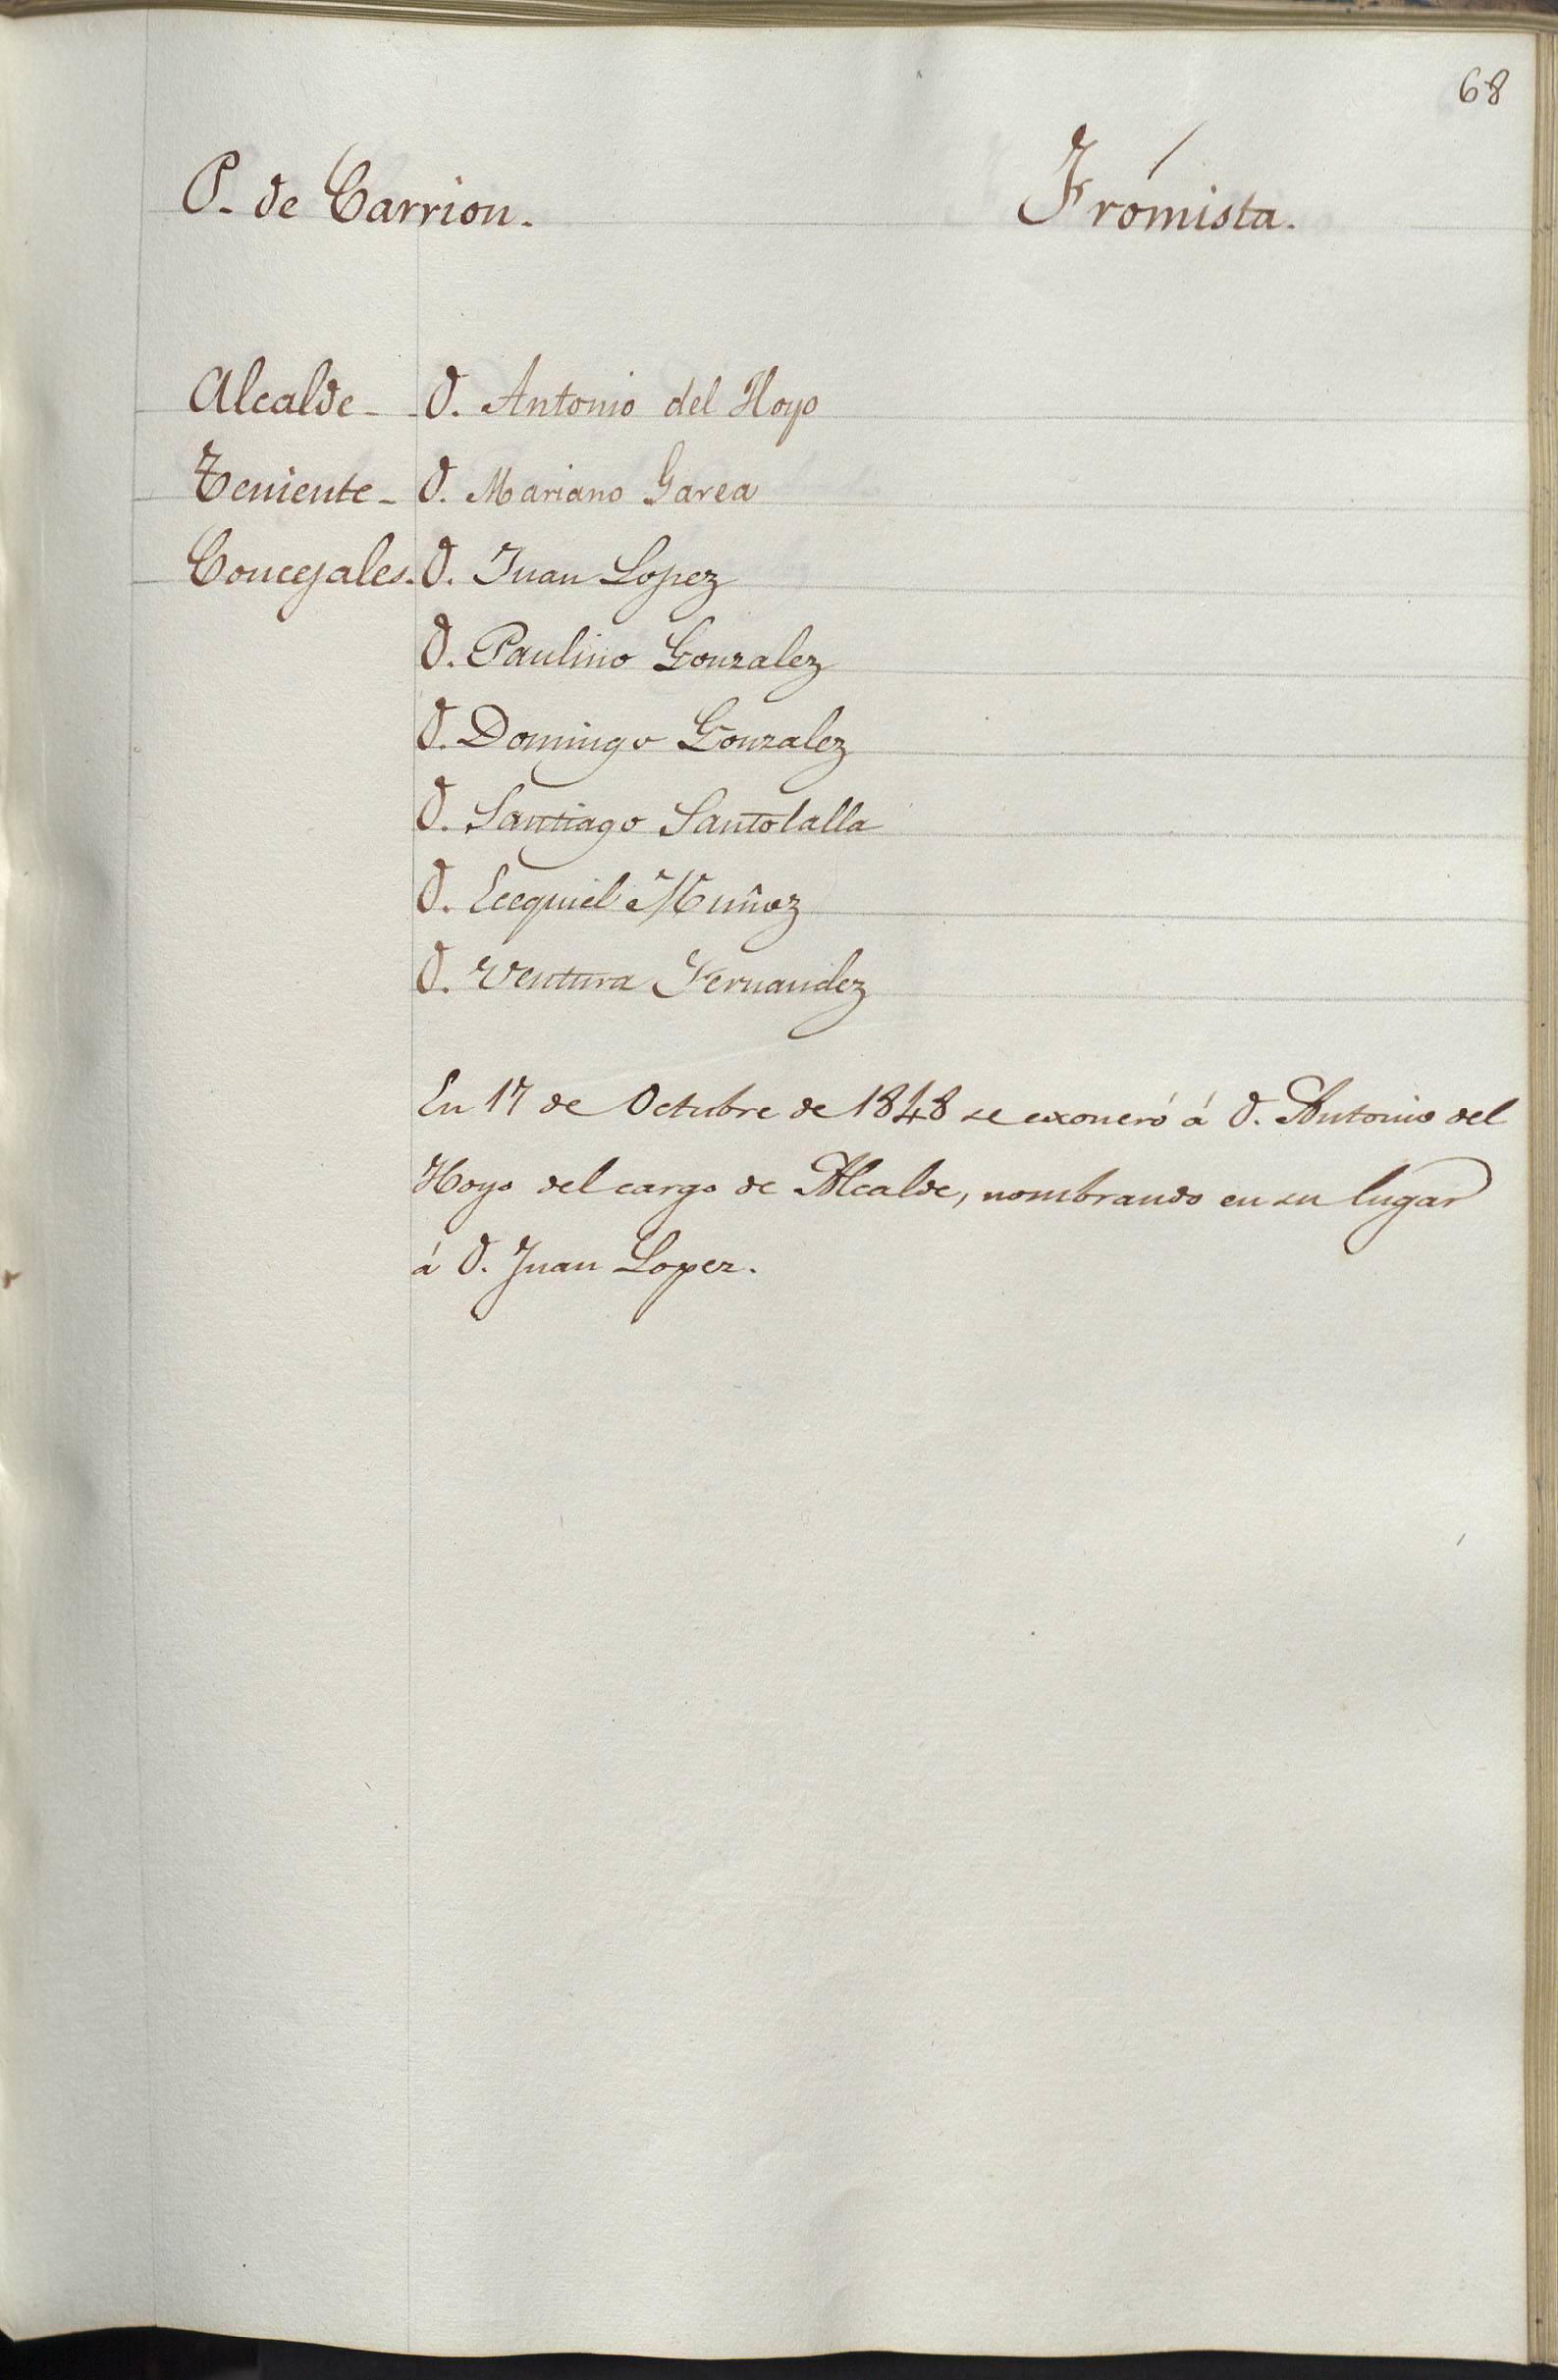 68
P. de Carrion. Frómista.
Alcalde - D. Antonio del Hoyo
Teniente - D. Mariano Garea
Concejales. D. Juan Lopez
D. Paulino Gonzalez
D. Domingo Gonzalez
D. Santiago Santolalla
D. Ecequiel Muñoz
D. Ventura Fernandez
En 17 de Octubre de 1848 se exoneró á D. Antonio del
Hoyo del cargo de Alcalde, nombrando en su lugar
á D. Juan Lopez.